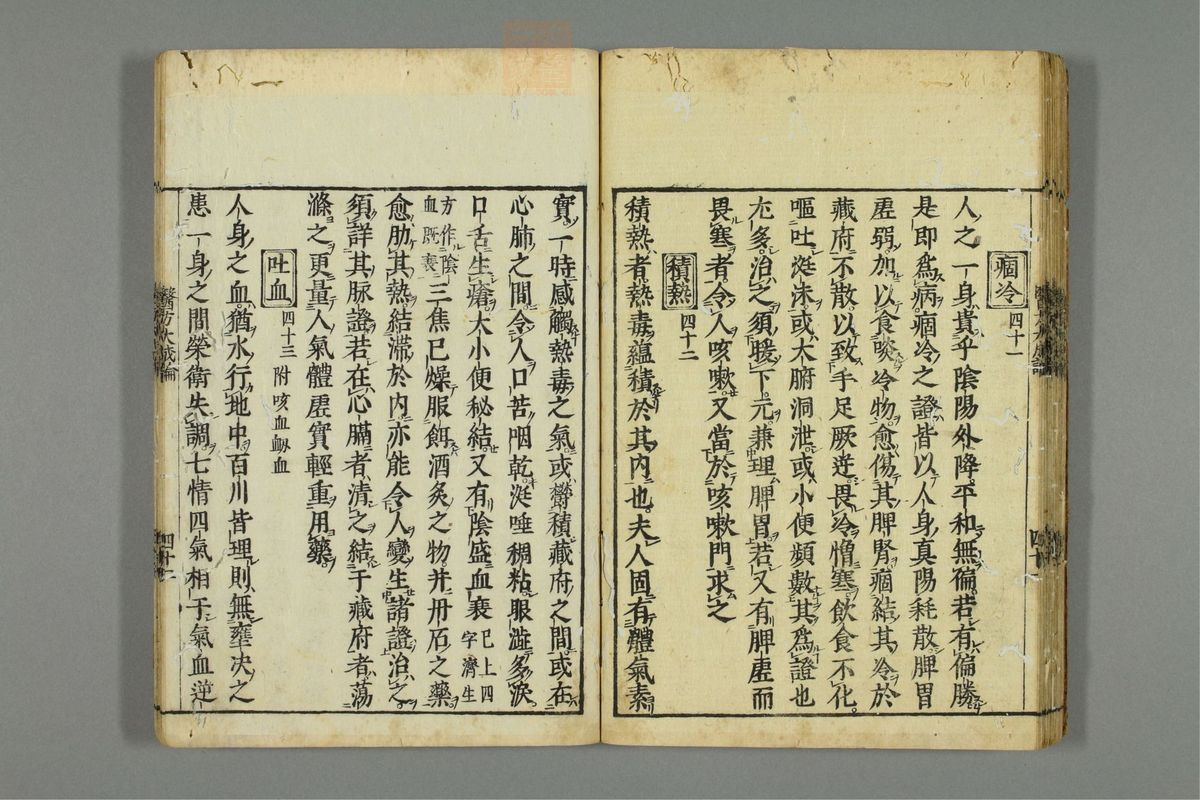 痼冷 四十一
人之一身貴乎陰陽升降平和無偏若有偏勝
是即爲病痼冷之證皆以人身真陽耗散脾胃
虛弱加以食啖冷物愈傷其脾腎痼結其冷於
藏府不散以致手足厥逆畏冷憎寒飲食不化
嘔吐涎沫或大腑洞泄或小便頻數其爲證也
尤多治之須暖下元兼理脾胃若又有脾虛而
畏寒者令人咳嗽又當於咳嗽門求之
積熱 四十二
積熱者熱毒蘊積於其内也夫人固有體氣素
實一時感觸熱毒之氣或欝積藏府之間或在
心肺之間令人口苦咽乾涎唾稠粘眼澁多淚
口舌生瘡大小便秘結又有陰盛血衰 已上四字濟生
方作陰血既衰 三焦已燥服餌酒炙之物并丹石之藥
愈助其熱結滞於内亦能令人變生諸證治之
須詳其脉證若在心膈者清之結于藏府者蕩
滌之更量人氣體虛實輕重用藥
吐血 四十三 附 咳血衂血
人身之血猶水行地中百川皆理則無壅决之
患一身之間榮衛失調七情四氣相于氣血逆
醫方大成論
四十二